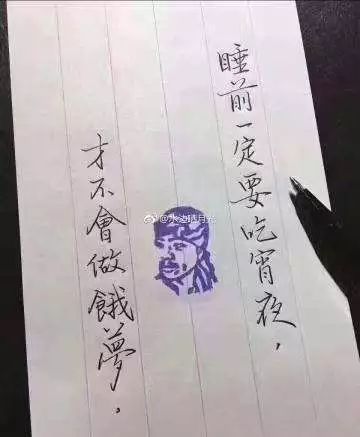 睡前一定要吃宵夜，
才不會做餓夢．